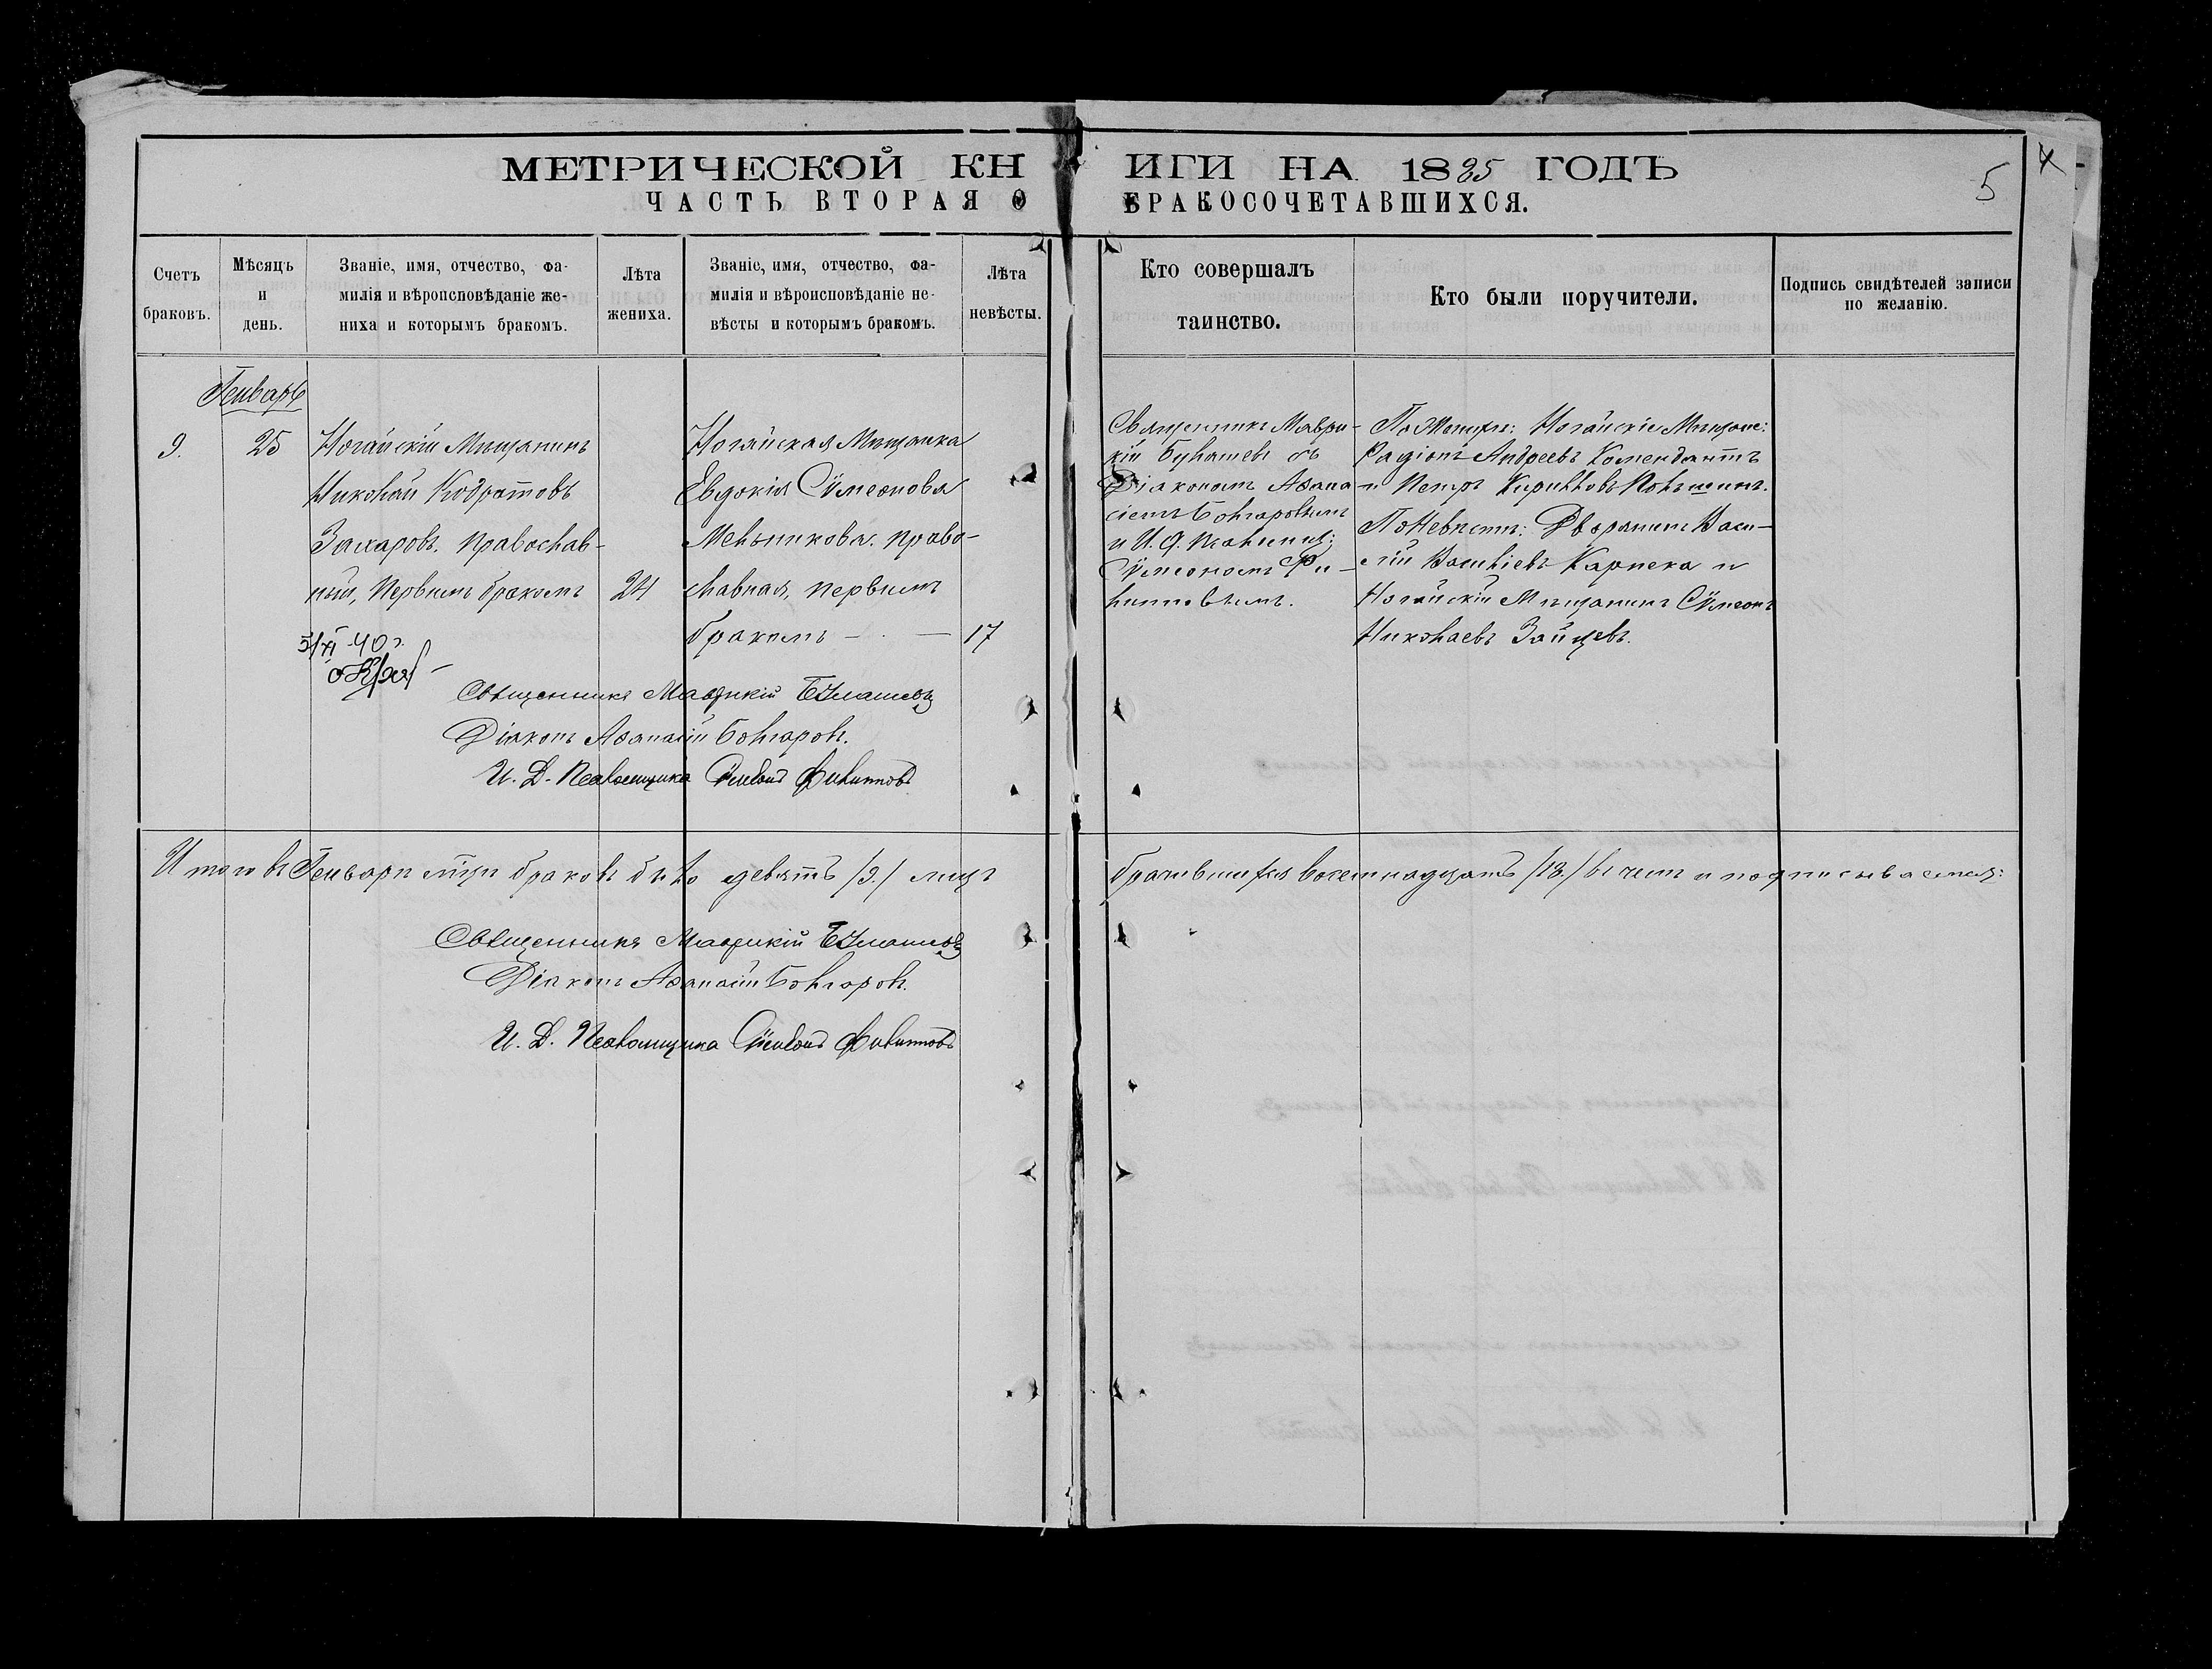 МЕТРИЧЕСКОЙ КНИГИ НА 1885 ГОДЪ
ЧАСТЬ ВТОРАЯ О БРАКОСОЧЕТАВШИХСЯ.
5
4
Счетъ
браковъ.
Мѣсяцъ
и
день.
Званіе, имя, отчество, фа-
милія и вѣроисповѣданіе же-
ниха и которымъ бракомъ.
Лѣта
жениха.
Званіе, имя, отчество, фа-
милія и вѣроисповѣданіе не-
вѣсты и которымъ бракомъ.
Лѣта
невѣсты.
Кто совершалъ
таинство.
Кто были поручители.
Подпись свидѣтелей записи
по желанію.
Генварь
9.
25
Ногайскій Мѣщанинъ
Николай Кодратовъ
Захаровъ. православ-
ный, первымъ бракомъ
24
Ногайская Мѣщанка
Евдокія Сѵмеонова
Мельникова. право-
славная, первымъ
бракомъ — . —
17
Священникъ Маври-
кій Булашевъ съ
Діакономъ Афана-
сіемъ Болгаровымъ
и И. д. псаломщ:
Сѵмеономъ Фи-
липповымъ.
По Женихѣ: Ногайскіе Мѣщане:
Радіонъ Андреевъ Комендантъ
и Петръ Кирилловъ
По Невѣстѣ: Дворянинъ Васи-
лій Васильевъ Карпека и
Ногайскій Мѣщанинъ Сѵмеонъ
Николаевъ Зайцевъ.
3/XI 40 г.
Священникъ Маврикій Булашевъ
Діаконъ Афанасій Болгаровъ.
И. Д. Псаломщика Сѵмеонъ Филипповъ
Итого въ Генварѣ м-цѣ браковъ было девять /9./ лицъ брачившихся восемнадцать /18./ въ чемъ и подписываемся:
Священникъ Маврикій Булашевъ
Діаконъ Афанасій Болгаровъ.
И. Д. Псаломщика Сѵмеонъ Филипповъ